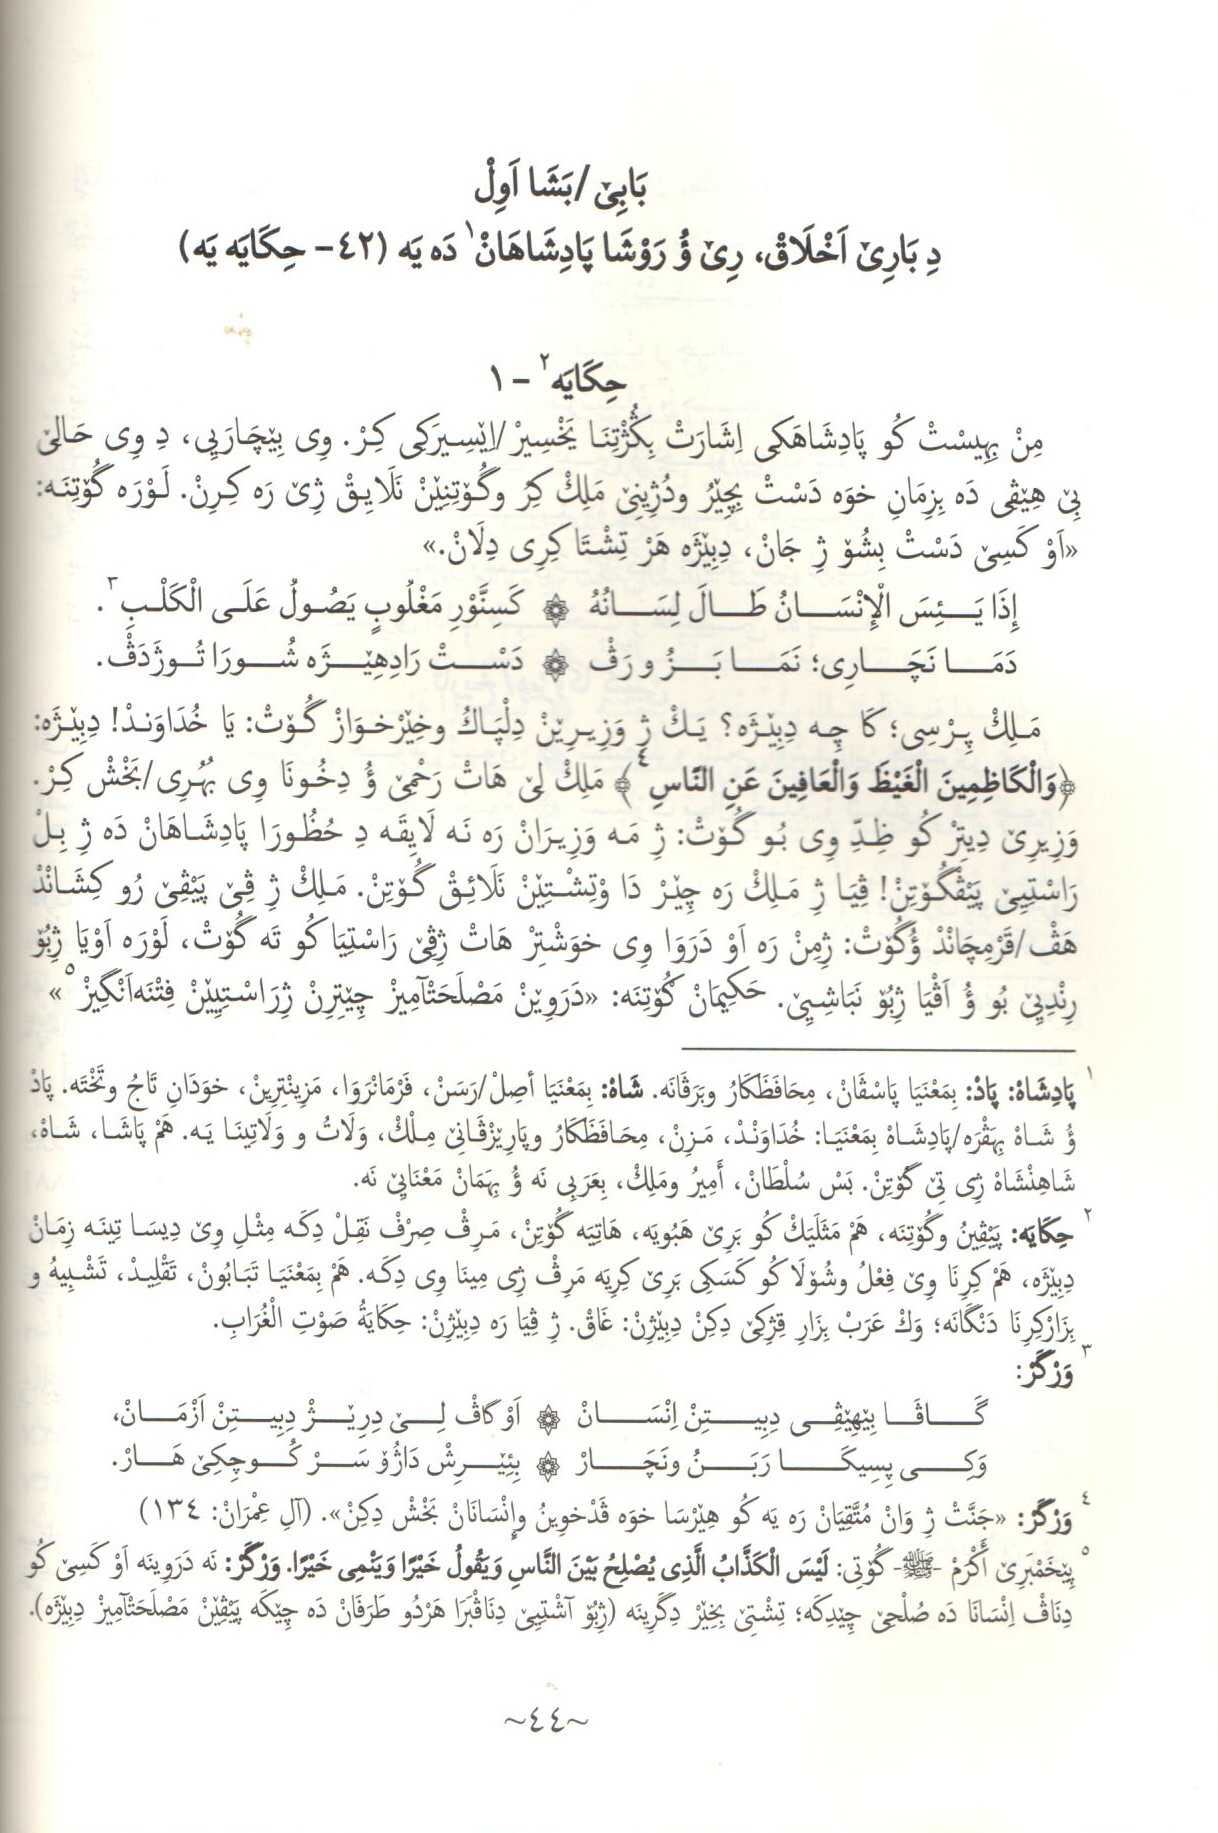 بَابِێ/بَشَا اَوِلْ
دِ بَارِێ اَخْلَاقْ، رِێ وُ رَوْشَا پَادِشَاهَانْ١ دَە یَە (٤٢- حِكَایَە یَە)
حِكَایَە٢ - ١
مِنْ بِهِیسْتْ كُو پَادِشَاهَكِی اِشَارَتْ بِكُژْتِنَا یَخْسِیرْ/اِێسِیرَكِی كِرْ. وِی بِێچَارَیِی، دِ وِی حَالێ
بِێ هِێڤِی دَە بِزِمَانِ خوَە دَسْتْ بِچِێرُ ودُژِینِێ مَلِكْ كِرُ وگُوۤتِنِێنْ نَلَایِقْ ژِێ رَە كِرِنْ. لَوْرَە گُوۤتِنَە:
«اَوْ كَسِێ دَسْتْ بِشُوۤ ژِ جَانْ، دِبِێژَە هَرْ تِشْتَا كِرِی دِلَانْ.»
إِذَا يَــئِسَ الْإِنْسَــانُ طَــالَ لِسَــانُهُ ۞ كَسِنَّوْرِ مَغْلُوبٍ يَصُولُ عَلَى الْكَلْبِ٣.
دَمَــا نَچَــارِی؛ نَمَــا بَــزُ و رَڤْ ۞ دَسْــتْ رَادِهِێــژَە شُــورَا تُــوژْ دَڤْ.
مَلِكْ پِرْسِی؛ كَا چِە دِبِێژَە؟ یَكْ ژِ وَزِیرِێنْ دِلْپَاكُ وخِێرْخوَازْ گُوۤتْ: یَا خُدَاوَنْدْ! دِبِێژَە:
﴿وَالْكَاظِمِينَ الْغَيْظَ وَالْعَافِينَ عَنِ النَّاسِ٤﴾ مَلِكْ لِێ هَاتْ رَحْمِێ وُ دِخُونَا وِی بُهُرِی/بَخْشْ كِرْ.
وَزِیرِێ دِیتِرْ كُو ظِدِّ وِی بُو گُوۤتْ: ژِ مَە وَزِیرَانْ رَە نَە لَایِقَە دِ حُظُورَا پَادِشَاهَانْ دَە ژِ بِلْ
رَاسْتِیِێ پَیْڤْگُوۤتِنْ! ڤِیَا ژِ مَلِكْ رَە چِێرْ دَا وْتِشْتِێنْ نَلَائِقْ گُوۤتِنْ. مَلِكْ ژِ ڤِێ پَیْڤِێ رُو كِشَانْدْ
هَڤْ/قَرْمِچَانْدْ وُگُوۤتْ: ژِمِنْ رَە اَوْ دَرَوَا وِی خوَشْتِرْ هَاتْ ژِڤِێ رَاسْتِیَا كُو تَە گُوۤتْ، لَوْرَە اَوْیَا ژِبُوۤ
رِنْدِیِێ بُو وُ اَڤْیَا ژِبُوۤ نَبَاشِیِێ. حَكِیمَانْ گُوۤتِنَە: «دَرَوِێنْ مَصْلَحَتْآمِیزْ چِێتِرِنْ ژِرَاسْتِیِێنْ فِتْنَەاَنْگِیزْ٥»
١ پَادِشَاهْ: پَادْ: بِمَعْنَیَا پَاسْڤَانْ، مِحَافَظَكَارُ وبَرَڤَانَە. شَاهْ: بِمَعْنَیَا أَصِلْ/رَسَنْ، فَرْمَانْرَوَا، مَزِینْتِرِینْ، خوَدَانِ تَاجُ وتَخْتَە. پَادْ
وُ شَاهْ بِهَڤْرَە/پَادِشَاهْ بِمَعْنَیَا: خُدَاوَنْدْ، مَزِنْ، مِحَافَظَكَارُ وپَارِێزْڤَانِێ مِلْكْ، وَلَاتُ و وَلَاتِینَا یَە. هَمْ پَاشَا، شَاهْ،
شَاهِنْشَاهْ ژِی تِێ گُوۤتِنْ. بَسْ سُلْطَانْ، أَمِیرُ ومَلِكْ، بِعَرَبِی نَە وُ بِهَمَانْ مَعْنَایِێ نَە.
٢ حِكَایَە: پَیْڤِینُ وگُوۤتِنَە، هَمْ مَثَلَیَكْ كُو بَرِێ هَبُویَە، هَاتِیَە گُوۤتِنْ، مَرِڤْ صِرْفْ نَقِلْ دِكَە مِثْلِ وِێ دِیسَا تِینَە زِمَانْ
دِبِێژَە، هَمْ كِرِنَا وِێ فِعْلُ وشُوۤلَا كُو كَسَكِی بَرِێ كِرِیَە مَرِڤْ ژِی مِینَا وِی دِكَە. هَمْ بِمَعْنَیَا تَبَابُونْ، تَقْلِیدْ، تَشْبِیهُ و
بِزَارْكِرِنَا دَنْگَانَە؛ وَكْ عَرَبْ بِزَارِ قِژْكِێ دِكِنْ دِبِێژِنْ: غَاقْ. ژِ ڤِیَا رَە دِبِێژِنْ: حِكَايَةُ صَوْتِ الْغُرَابِ.
٣ وَرْگَرْ:
گَــاڤَــا بِێهِێڤِــی دِبِیــتِنْ اِنْسَــانْ ۞ اَوْ گَاڤْ لِــێ دِرِێــژْ دِبِیــتِنْ اَزْمَــانْ،
وَكِــی پِسِیكَــا رَبَــنُ ونَچَــارْ ۞ بِئِێــرِشْ دَاژُوۤ سَــرْ كُــوچِكِێ هَــارْ.
٤ وَرْگَرْ: «جَنَّتْ ژِ وَانْ مُتَّقِیَانْ رَە یَە كُو هِێرْسَا خوَە ڤَدْخوِینُ وإِنْسَانَانْ بَخْشْ دِكِنْ». (آلِ عِمْرَانْ: ١٣٤)
٥ پِێخَمْبَرِێ أَكْرَمْ -ﷺ- گُوۤتِی: لَيْسَ الْكَذَّابُ الَّذِي يُصْلِحُ بَيْنَ النَّاسِ وَيَقُولُ خَيْرًا وَيَنْمِي خَيْرًا. وَرْگَرْ: نَە دَرَوِینَە اَوْ كَسِێ كُو
دِنَاڤْ اِنْسَانَا دَە صُلْحِێ چِێدِكَە؛ تِشْتِێ بِخِێرْ دِگَرِینَە (ژِبُوۤ آشْتِیِێ دِنَاڤْبَرَا هَرْدُو طَرَفَانْ دَە چِێكَە پَیْڤِێنْ مَصْلَحَتْآمِیزْ دِبِێژَە).
~٤٤~